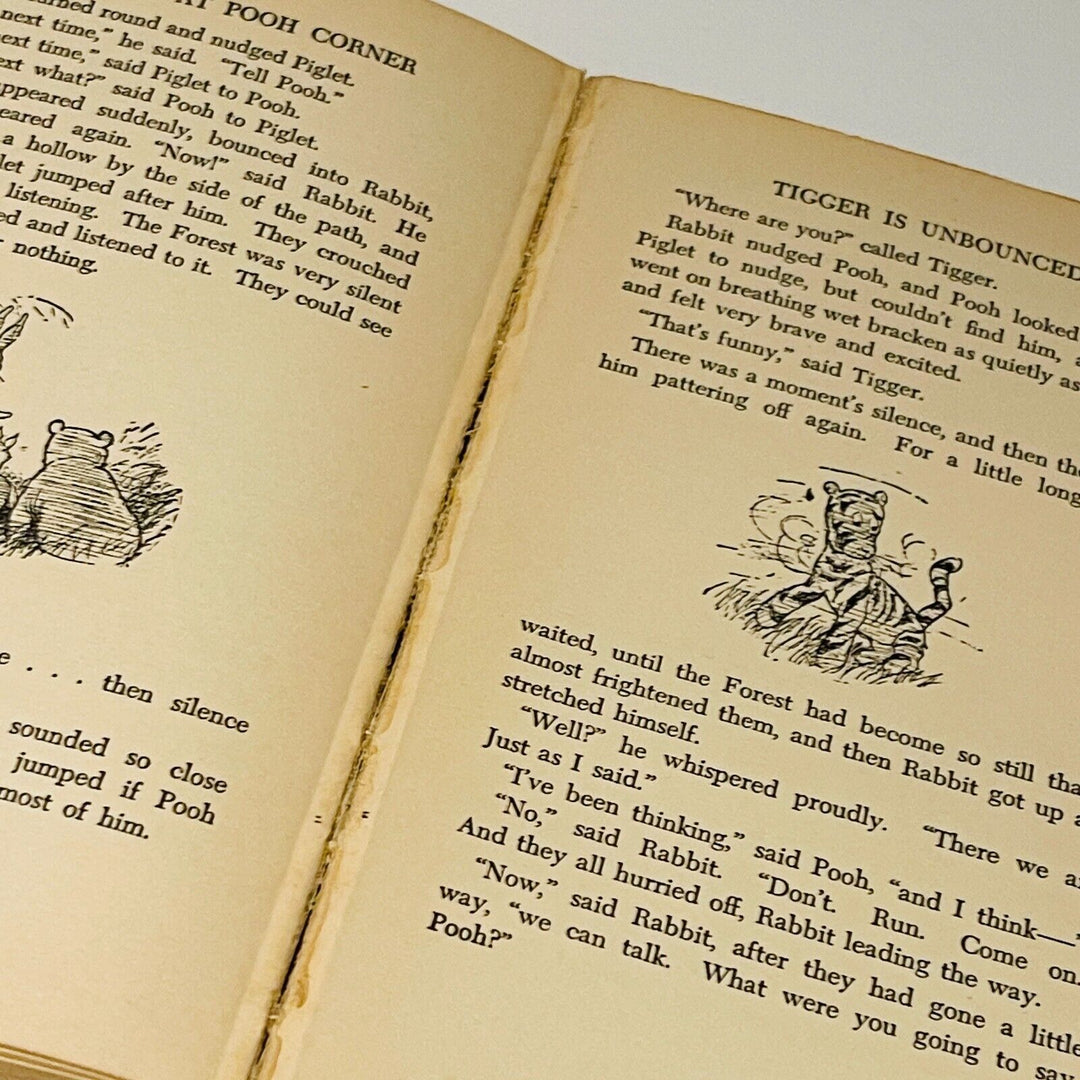 AT POOH CORNER
turned round and nudged Piglet.
next time," he said. "Tell Pooh."
next time," said Piglet to Pooh.
what?" said Pooh to Piglet.
appeared suddenly, bounced into Rabbit,
again. "Now!" said Rabbit. He
a hollow by the side of the path, and
jumped after him. They crouched
listening. The Forest was very silent
and listened to it. They could see
nothing.
. . . then silence
sounded so close
jumped if Pooh
most of him.
TIGGER IS UNBOUNCED
"Where are you?" called Tigger.
Rabbit nudged Pooh, and Pooh looked
Piglet to nudge, but couldn't find him,
went on breathing wet bracken as quietly as
and felt very brave and excited.
"That's funny," said Tigger.
There was a moment's silence, and then the
him pattering off again. For a little long
waited, until the Forest had become so still tha
almost frightened them, and then Rabbit got up a
stretched himself.
"Well?" he whispered proudly. "There we a
Just as I said."
"I've been thinking," said Pooh, "and I think—"
"No," said Rabbit. "Don't. Run. Come on."
And they all hurried off, Rabbit leading the way.
"Now," said Rabbit, after they had gone a little
way, "we can talk. What were you going to say
Pooh?"